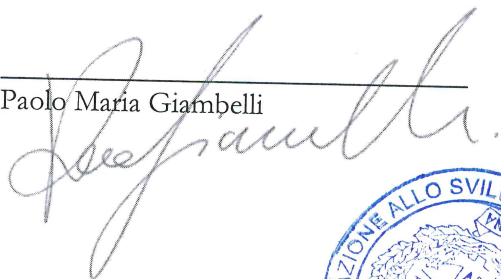 Paolo Maria Giambelli
AZIONE ALLO SVIL